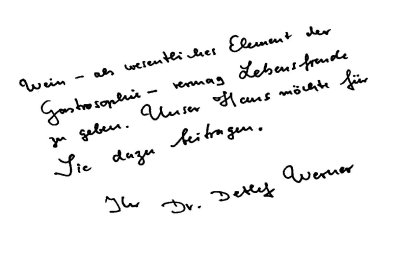 Wein – als wesentliches Element der
Gastrosophie – vermag Lebensfreude
zu geben. Unser Haus möchte für
Sie dazu beitragen.
Ihr Dr. Detlef Werner